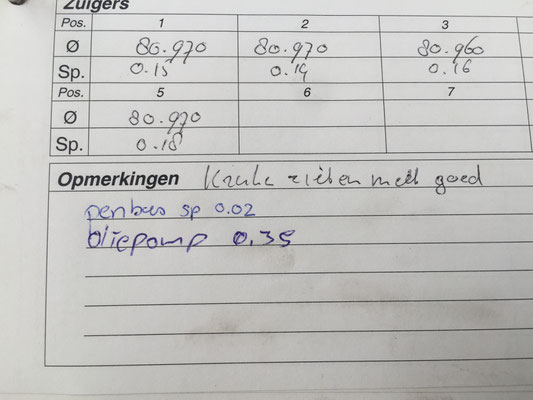 Zuigers
Pos. 1 2 3
Ø 80.970 80.970 80.960
Sp. 0.15 0.14 0.16
Pos. 5 6 7
Ø 80.970
Sp. 0.18
Opmerkingen zitten goed
penbus sp 0.02
oliepomp 0.35